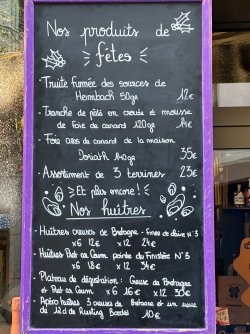 Nos produits de
fêtes
- Truite fumée des sources de
Heimbach 50gr 12€
- Tranche de pâté en croute et mousse
de foie de canard 120gr 14€
- Foie gras de canard de la maison
140gr 35€
- Assortiment de 3 terrines 23€
Et plus encore!
Nos huîtres
- Huîtres creuses de Bretagne - Fines de claire N°3
x6 12€ x12 24€
- Huîtres Plat ou Carum pointe du Finistère N°3
x6 18€ x12 34€
- Plateau de dégustation: Creuse de Bretagne
et Plat ou Carum x6 16€ x12 30€
- Apéro huîtres 3 creuses de Bretagne et un verre
de 12cl de Riesling 10€